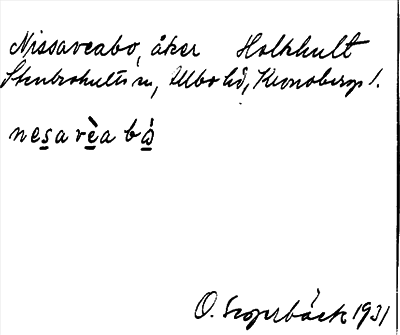 Nissaveabo, åker Holkhult
Stenbrohults sn, Allbo hd, Kronobergs l.
nesavèabò
O. Sogerbäck 1931